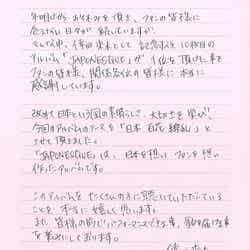 年明けから お休みを頂き、ファンの皆様に
会えない日々が 続いていますが、
そんな中、倖田來未として 記念すべき 10枚目の
アルバム「JAPONESQUE」が 1位を頂けた事で
ファンの皆様、関係各位の皆様に 本当に
感謝しています。
改めて日本という国の素晴らしさ、大切さを学び
今回のアルバムのテーマも「日本 百花繚乱」と
させて頂きました。
「JAPONESQUE」は、日本を想い ファンを想い
作ったアルバムです。
このアルバムを たくさんの方に聴いていただいている
ことを 本当に嬉しく思います。
また、皆様の前で パフォーマンスできる事、
を楽しみにしております。
倖田來未